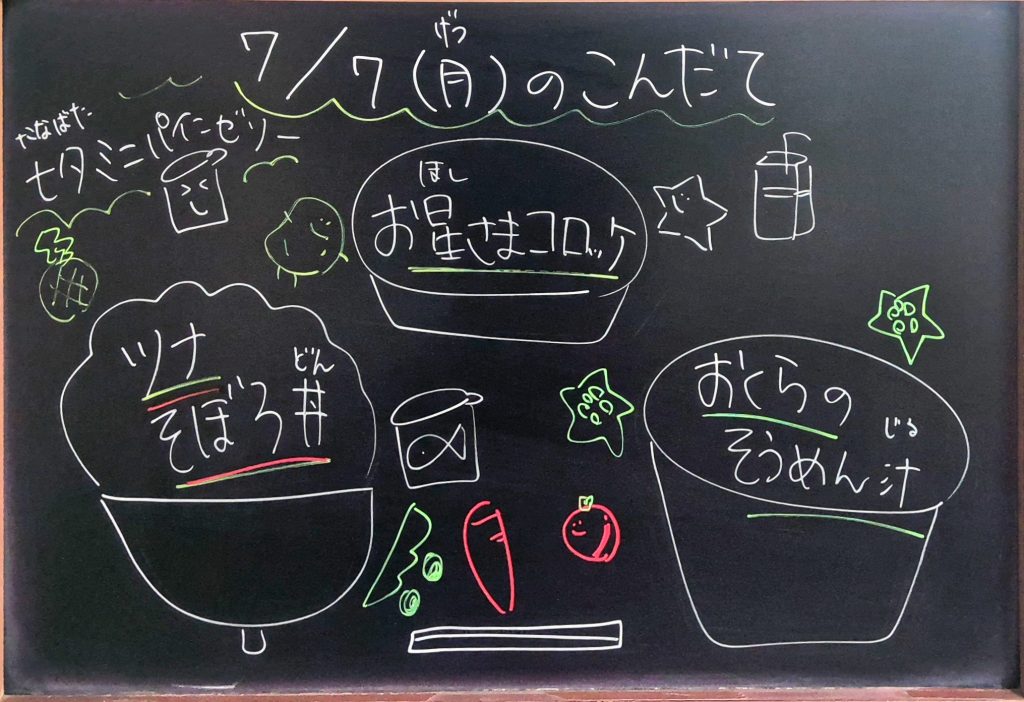 7/7(月)のこんだて
げつ
たなばた
七夕ミニパインゼリー
ほし
お星さまコロッケ
ツナ
そぼろ丼
どん
おくらの
そうめん汁
じる